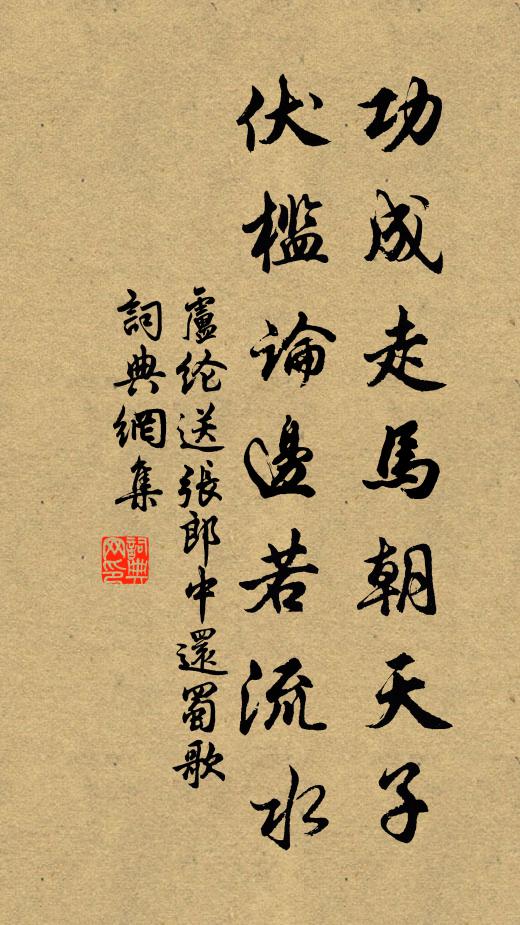 功成走馬朝天子
伏檻論邊若流水
盧綸送張郎中還蜀歌
詞典網集
詞典
网印